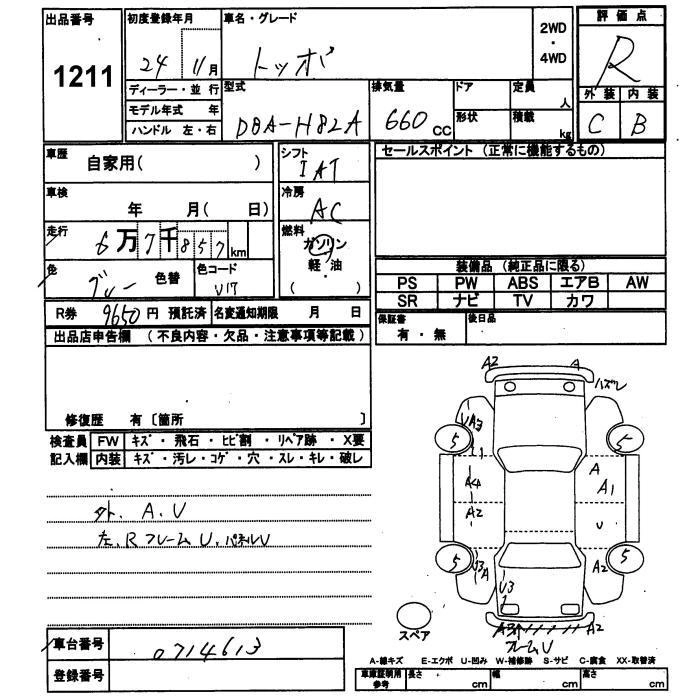 出品番号
1211
初度登録年月
24 11月
車名・グレード
トッポ
2WD
・
4WD
評価点
R
外装 内装
C B
ディーラー・並行
モデル年式 年
ハンドル 左・右
型式
DBA-H82A
排気量
660 CC
ドア
形状
定員
人
積載
kg
車歴
自家用( )
シフト
IAT
セールスポイント (正常に機能するもの)
車検
年 月( 日)
冷房
AC
走行
6万7千857km
燃料
ガソリン
軽・油
( )
色
グレー 色替
色コード
V17
装備品 (純正品に限る)
PS PW ABS エアB AW
SR ナビ TV カワ
R券 9650円 預託済 名変通知期限 月 日
保証書
有・無
後日品
出品店申告欄 (不良内容・欠品・注意事項等記載)
修復歴 有〔箇所 〕
検査員 FW キズ・飛石・ヒビ割・リペア跡・X要
記入欄 内装 キズ・汚レ・コゲ・穴・スレ・キレ・破レ
外. A. U
左. Rフレーム U. パネルU
A2 A
ハズレ
UA3
5 5
A
A4 A1
A2 U
5 5
U3A A2
U3
A3 A2
フレームU
スペア
車台番号 0714613
登録番号
A-線キズ E-エクボ U-凹み W-補修跡 S-サビ C-腐食 XX-取替済
車庫証明用
参考
長さ cm 幅 cm 高さ cm